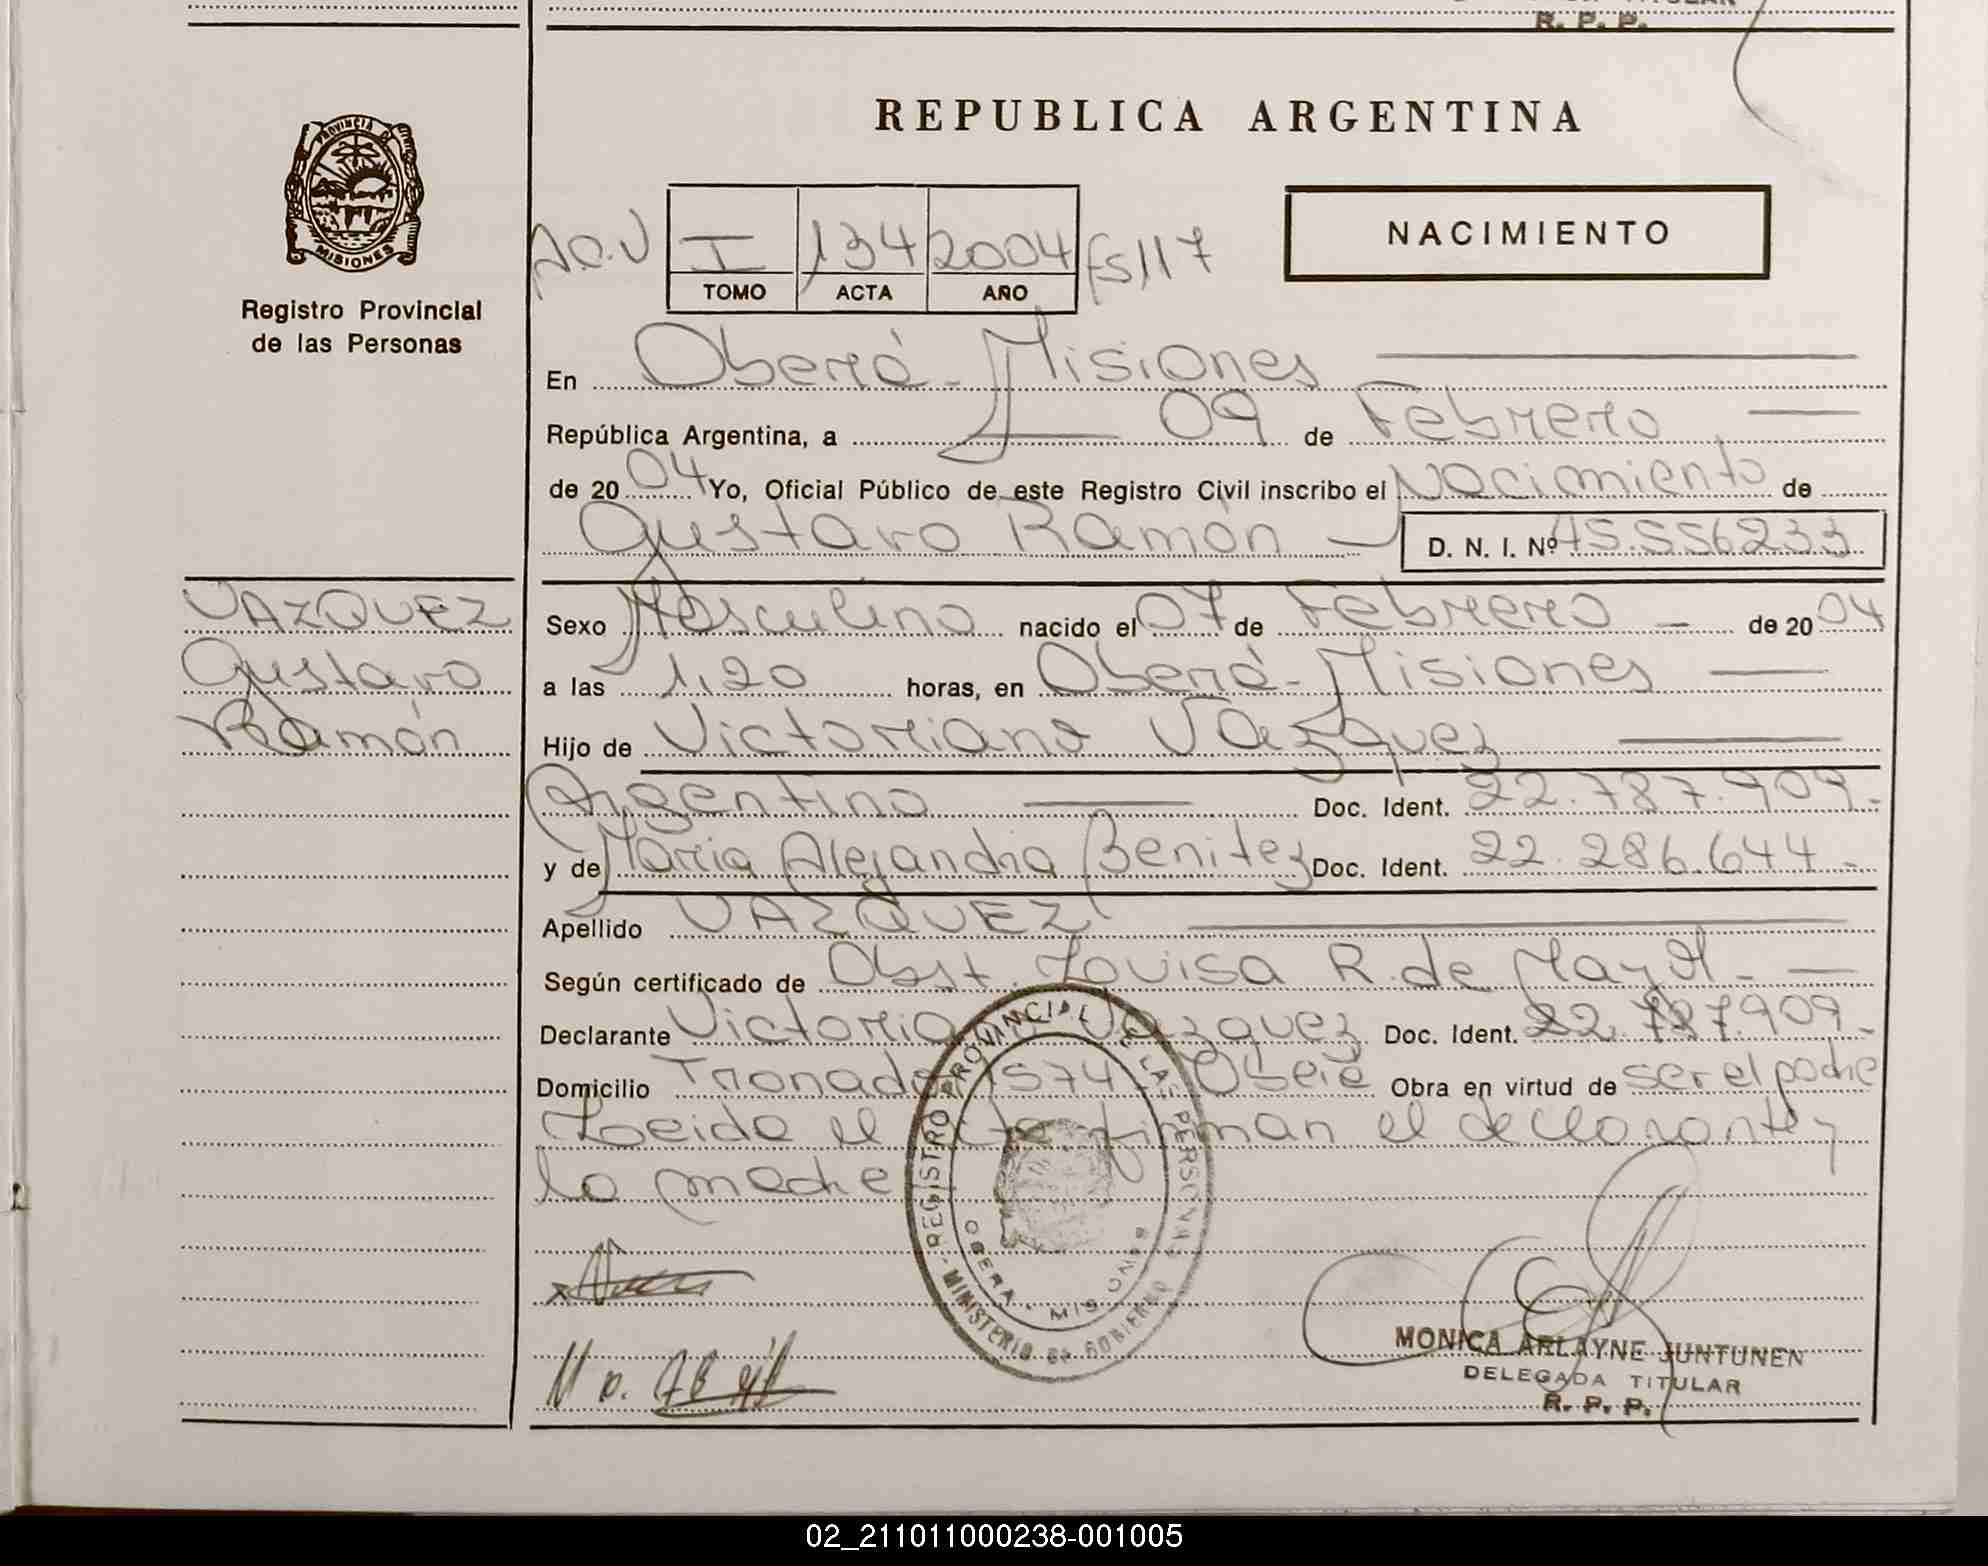 R. P. P.
PROVINCIA DE
MISIONES
Registro Provincial
de las Personas
REPUBLICA ARGENTINA
NACIMIENTO
I 134 2004 fs 117
TOMO ACTA AÑO
En Oberá - Misiones
República Argentina, a 09 de Febrero
de 2004 Yo, Oficial Público de este Registro Civil inscribo el Nacimiento de
Gustavo Ramón D. N. I. Nº 45.556233
VAZQUEZ
Gustavo
Ramón
Sexo Masculino nacido el 07 de Febrero de 2004
a las 1,20 horas, en Oberá - Misiones
Hijo de Victoriano Vazquez
Argentino Doc. Ident. 22.787.909.-
y de Maria Alejandra Benitez Doc. Ident. 22.286.644.-
Apellido VAZQUEZ
Según certificado de Obst. Louisa R. de
Declarante Victoria Vazquez Doc. Ident. 22.787.909.-
Domicilio 1574 Oberá Obra en virtud de ser el padre
Leida el acta firman el declarante y
la madre
REGISTRO PROVINCIAL DE LAS PERSONAS
MINISTERIO DE GOBIERNO
OBERA - MISIONES
MONICA ARLAYNE JUNTUNEN
DELEGADA TITULAR
R. P. P.
02_211011000238-001005